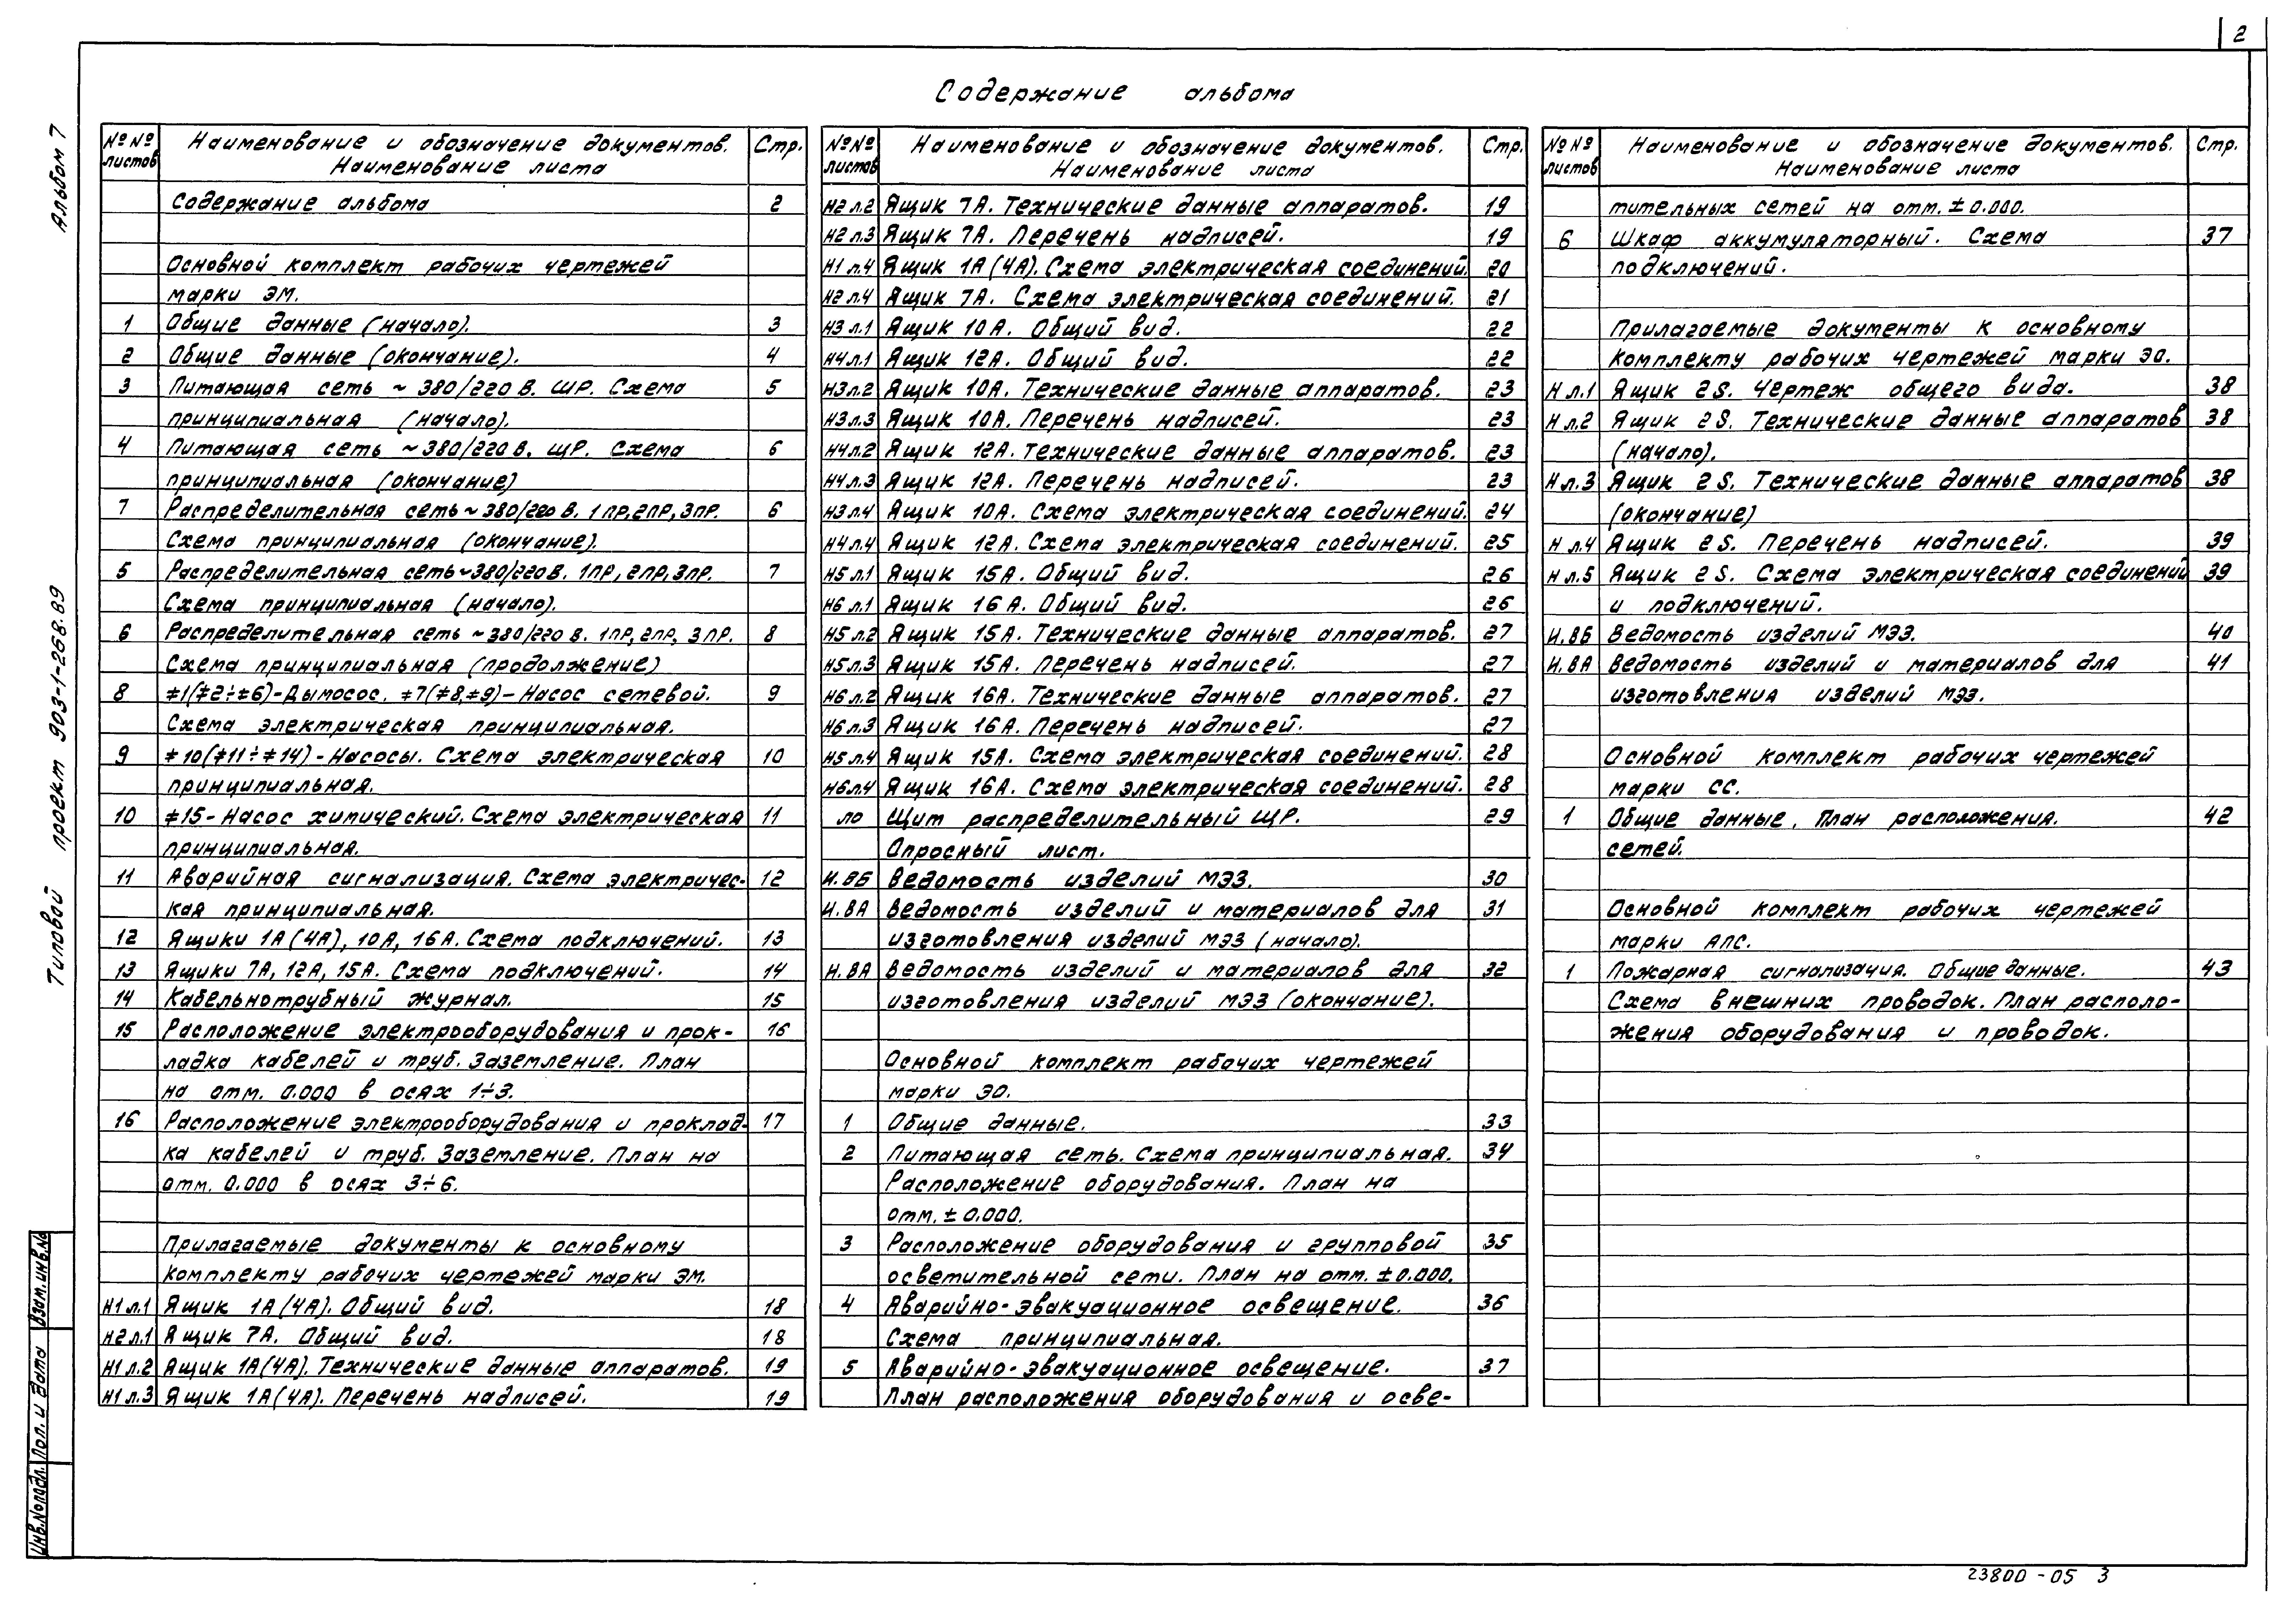 2
Содержание альбома
№№ листов Наименование и обозначение документов. Наименование листа Стр.
Содержание альбома 2
Основной комплект рабочих чертежей
марки ЭМ.
1 Общие данные (начало). 3
2 Общие данные (окончание). 4
3 Питающая сеть ~ 380/220 В. ЩР. Схема 5
принципиальная (начало).
4 Питающая сеть ~380/220 В. ЩР. Схема 6
принципиальная (окончание)
7 Распределительная сеть ~ 380/220 В. 1ПР, 2ПР, 3ПР. 6
Схема принципиальная (окончание).
5 Распределительная сеть ~380/220 В. 1ПР, 2ПР, 3ПР. 7
Схема принципиальная (начало).
6 Распределительная сеть ~380/220 В. 1ПР, 2ПР, 3ПР. 8
Схема принципиальная (продолжение)
8 ≠1(≠2÷≠6)-Дымосос. ≠7(≠8,≠9)-Насос сетевой. 9
Схема электрическая принципиальная.
9 ≠10(≠11÷≠14)-Насосы. Схема электрическая 10
принципиальная.
10 ≠15-Насос химический. Схема электрическая 11
принципиальная.
11 Аварийная сигнализация. Схема электричес- 12
кая принципиальная.
12 Ящики 1А(4А), 10А, 16А. Схема подключений. 13
13 Ящики 7А, 12А, 15А. Схема подключений. 14
14 Кабельнотрубный журнал. 15
15 Расположение электрооборудования и прок- 16
ладка кабелей и труб. Заземление. План
на отм. 0.000 в осях 1÷3.
16 Расположение электрооборудования и проклад- 17
ка кабелей и труб. Заземление. План на
отм. 0.000 в осях 3÷6.
Прилагаемые документы к основному
комплекту рабочих чертежей марки ЭМ.
Н1 л.1 Ящик 1А(4А). Общий вид. 18
Н2 л.1 Ящик 7А. Общий вид. 18
Н1 л.2 Ящик 1А(4А). Технические данные аппаратов. 19
Н1 л.3 Ящик 1А(4А). Перечень надписей. 19
№№ листов Наименование и обозначение документов. Наименование листа Стр.
Н2 л.2 Ящик 7А. Технические данные аппаратов. 19
Н2 л.3 Ящик 7А. Перечень надписей. 19
Н1 л.4 Ящик 1А(4А). Схема электрическая соединений. 20
Н2 л.4 Ящик 7А. Схема электрическая соединений. 21
Н3 л.1 Ящик 10А. Общий вид. 22
Н4 л.1 Ящик 12А. Общий вид. 22
Н3 л.2 Ящик 10А. Технические данные аппаратов. 23
Н3 л.3 Ящик 10А. Перечень надписей. 23
Н4 л.2 Ящик 12А. Технические данные аппаратов. 23
Н4 л.3 Ящик 12А. Перечень надписей. 23
Н3 л.4 Ящик 10А. Схема электрическая соединений. 24
Н4 л.4 Ящик 12А. Схема электрическая соединений. 25
Н5 л.1 Ящик 15А. Общий вид. 26
Н6 л.1 Ящик 16А. Общий вид. 26
Н5 л.2 Ящик 15А. Технические данные аппаратов. 27
Н5 л.3 Ящик 15А. Перечень надписей. 27
Н6 л.2 Ящик 16А. Технические данные аппаратов. 27
Н6 л.3 Ящик 16А. Перечень надписей. 27
Н5 л.4 Ящик 15А. Схема электрическая соединений. 28
Н6 л.4 Ящик 16А. Схема электрическая соединений. 28
ЛО Щит распределительный ЩР. 29
Опросный лист.
И.ВБ Ведомость изделий МЭЗ. 30
И.ВА Ведомость изделий и материалов для 31
изготовления изделий МЭЗ (начало).
И.ВА Ведомость изделий и материалов для 32
изготовления изделий МЭЗ (окончание).
Основной комплект рабочих чертежей
марки ЭО.
1 Общие данные. 33
2 Питающая сеть. Схема принципиальная. 34
Расположение оборудования. План на
отм. ± 0.000.
3 Расположение оборудования и групповой 35
осветительной сети. План на отм. ±0.000.
4 Аварийно-эвакуационное освещение. 36
Схема принципиальная.
5 Аварийно-эвакуационное освещение. 37
План расположения оборудования и осве-
№№ листов Наименование и обозначение документов. Наименование листа Стр.
тительных сетей на отм. ± 0.000.
6 Шкаф аккумуляторный. Схема 37
подключений.
Прилагаемые документы к основному
комплекту рабочих чертежей марки ЭО.
Н л.1 Ящик 2S. Чертеж общего вида. 38
Н л.2 Ящик 2S. Технические данные аппаратов 38
(начало).
Н л.3 Ящик 2S. Технические данные аппаратов 38
(окончание)
Н л.4 Ящик 2S. Перечень надписей. 39
Н л.5 Ящик 2S. Схема электрическая соединений 39
и подключений.
И.ВБ Ведомость изделий МЭЗ. 40
И.ВА Ведомость изделий и материалов для 41
изготовления изделий МЭЗ.
Основной комплект рабочих чертежей
марки СС.
1 Общие данные. План расположения. 42
сетей.
Основной комплект рабочих чертежей
марки АПС.
1 Пожарная сигнализация. Общие данные. 43
Схема внешних проводок. План располо-
жения оборудования и проводок.
Альбом 7
Типовой проект 903-1-268.89
Взам.инв.№
Пол. и дата
Инв.№подл.
23800-05 3